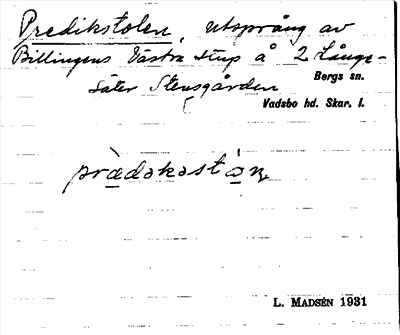 Predikstolen, utsprång av
Billingens Västra stup å 2 Långe-
Bergs sn.
säter Stensgården
Vadsbo hd. Skar. l.
prædəkəstɔn
L. MADSÉN 1931